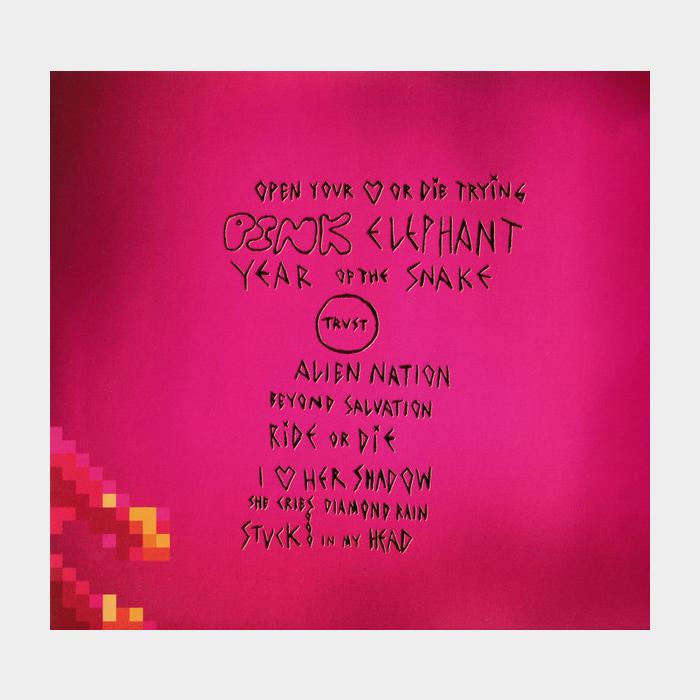 OPEN YOUR ♡ OR DIE TRYING
PINK ELEPHANT
YEAR OF THE SNAKE
TRUST
ALIEN NATION
BEYOND SALVATION
RIDE OR DIE
I ♡ HER SHADOW
SHE CRIES DIAMOND RAIN
STUCK IN MY HEAD